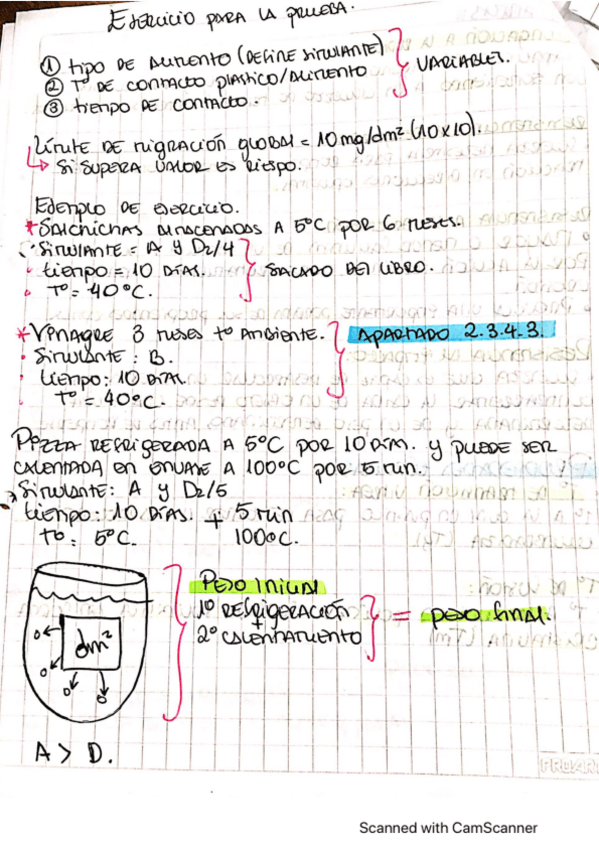 EJERCICIO PARA LA PRUEBA.
① tipo DE ALIMENTO (DEFINE SIMULANTE)
② Tº DE CONTACTO PLASTICO/ALIMENTO
③ tiempo DE CONTACTO.
VARIABLES.
Límite DE MIGRACIÓN GLOBAL = 10 mg/dm² (10x10).
↳ Si SUPERA VALOR ES RIESGO.
EJEMPLO DE EJERCICIO.
* SALCHICHAS ALMACENADAS A 5°C POR 6 MESES.
· SIMULANTE = A Y D2/4
· tiempo = 10 DÍAS.
· Tº = 40°C.
SACADO DEL LIBRO.
* VINAGRE 3 MESES tº AMBIENTE.
APARTADO 2.3.4.3.
· SIMULANTE: B.
· tiempo: 10 DÍAS
· Tº = 40°C.
PIZZA REFRIGERADA A 5°C POR 10 DÍAS. Y PUEDE SER
CALENTADA EN ENVASE A 100°C POR 5 MIN.
SIMULANTE: A Y D2/5
tiempo: 10 DÍAS. + 5 MIN
tº: 5°C. 100°C.
PESO INICIAL
1º REFRIGERACIÓN
+
2º CALENTAMIENTO
= PESO FINAL.
dm²
A > D.
PROART
Scanned with CamScanner